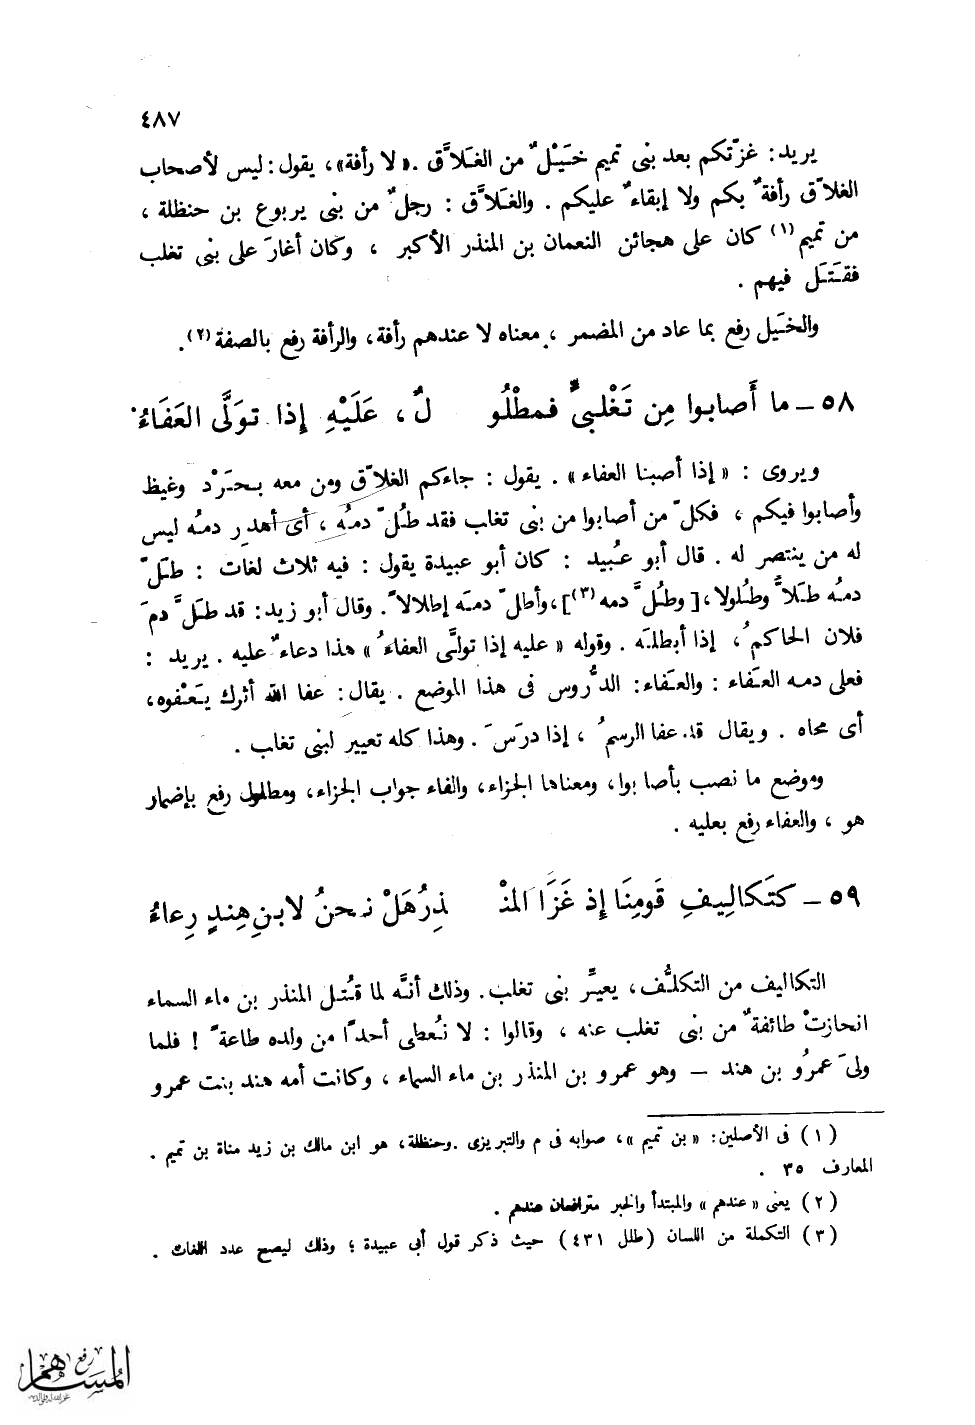 ٤٨٧
يريد: غزّتكم بعد بنى تميم خَيْلٌ من الغَلاَّق. «لا رأفة»، يقول: ليس لأصحاب
الغلاّق رأفةٌ بكم ولا إبقاءٌ عليكم. والغَلاَّق: رجلٌ من بنى يربوع بن حنظلة،
من تميم(١) كان على هجائن النعمان بن المنذر الأكبر، وكان أغارَ على بنى تغلب
فقَتَل فيهم.
والخَيل رفع بما عاد من المضمر، معناه لا عندهم رأفة، والرأفة رفع بالصفة(٢).
٥٨ ـ ما أَصابوا مِن تَغْلبىٍّ فمطْلُو لٌ، عَلَيْهِ إِذا تَوَلَّى العَفَاءُ
ويروى: «إذا أصبنا العفاء». يقول: جاءكم الغلاّق ومن معه بحَرْد وغيظ
وأصابوا فيكم، فكلّ من أصابوا من بنى تغلب فقد طُلّ دمُه، أى أهدِر دمُه ليس
له من ينتصر له. قال أبو عُبيد: كان أبو عبيدة يقول: فيه ثلاث لغات: طَلّ
دمُه طَلاًّ وطُلولا، [وطُلَّ دمه(٣)]، وأطلّ دمَه إطلالاً. وقال أبو زيد: قد طَلَّ دمَ
فلان الحاكمُ، إذا أبطلَه. وقوله «عليه إذا تولَّى العفاءُ» هذا دعاءٌ عليه. يريد:
فعلى دمه العَفاء: والعَفاء: الدُّروس فى هذا الموضع. يقال: عفا الله أثرك يَعْفوه،
أى محاه. ويقال قد عفا الرسمُ، إذا درَسَ. وهذا كله تعيير لبنى تغلب.
وموضع ما نصب بأصابوا، ومعناها الجزاء، والفاء جواب الجزاء، ومطلول رفع بإضمار
هو، والعفاء رفع بعليه.
٥٩ ـ كتَكَالِيفِ قَومِنَا إِذ غَزَا المنْـ ـذِرُ هَلْ نحنُ لابنِ هِندٍ رِعاءُ
التكاليف من التكلُّف، يعيِّر بنى تغلب. وذلك أنَّه لما قُتل المنذر بن ماء السماء
انحازتْ طائفةٌ من بنى تغلب عنه، وقالوا: لا نُعطى أحدًا من ولده طاعةً! فلما
ولىَ عمرُو بن هند ـ وهو عمرو بن المنذر بن ماء السماء، وكانت أمه هند بنت عمرو
(١) فى الأصلين: «بن تميم»، صوابه فى م والتبريزى. وحنظلة، هو ابن مالك بن زيد مناة بن تميم.
المعارف ٣٥.
(٢) يعنى «عندهم» والمبتدأ والخبر مترافعان عندهم.
(٣) التكملة من اللسان (طلل ٤٣١) حيث ذكر قول أبى عبيدة؛ وذلك ليصح عدد اللغات.
رفع
المساهم